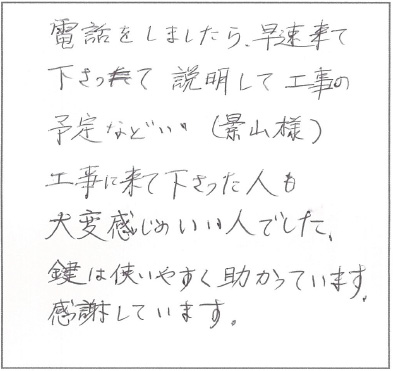 電話をしましたら、早速来て
下さって 説明して工事の
予定などいい(景山様)
工事に来て下さった人も
大変感じのいい人でした。
鍵は使いやすく助かっています。
感謝しています。